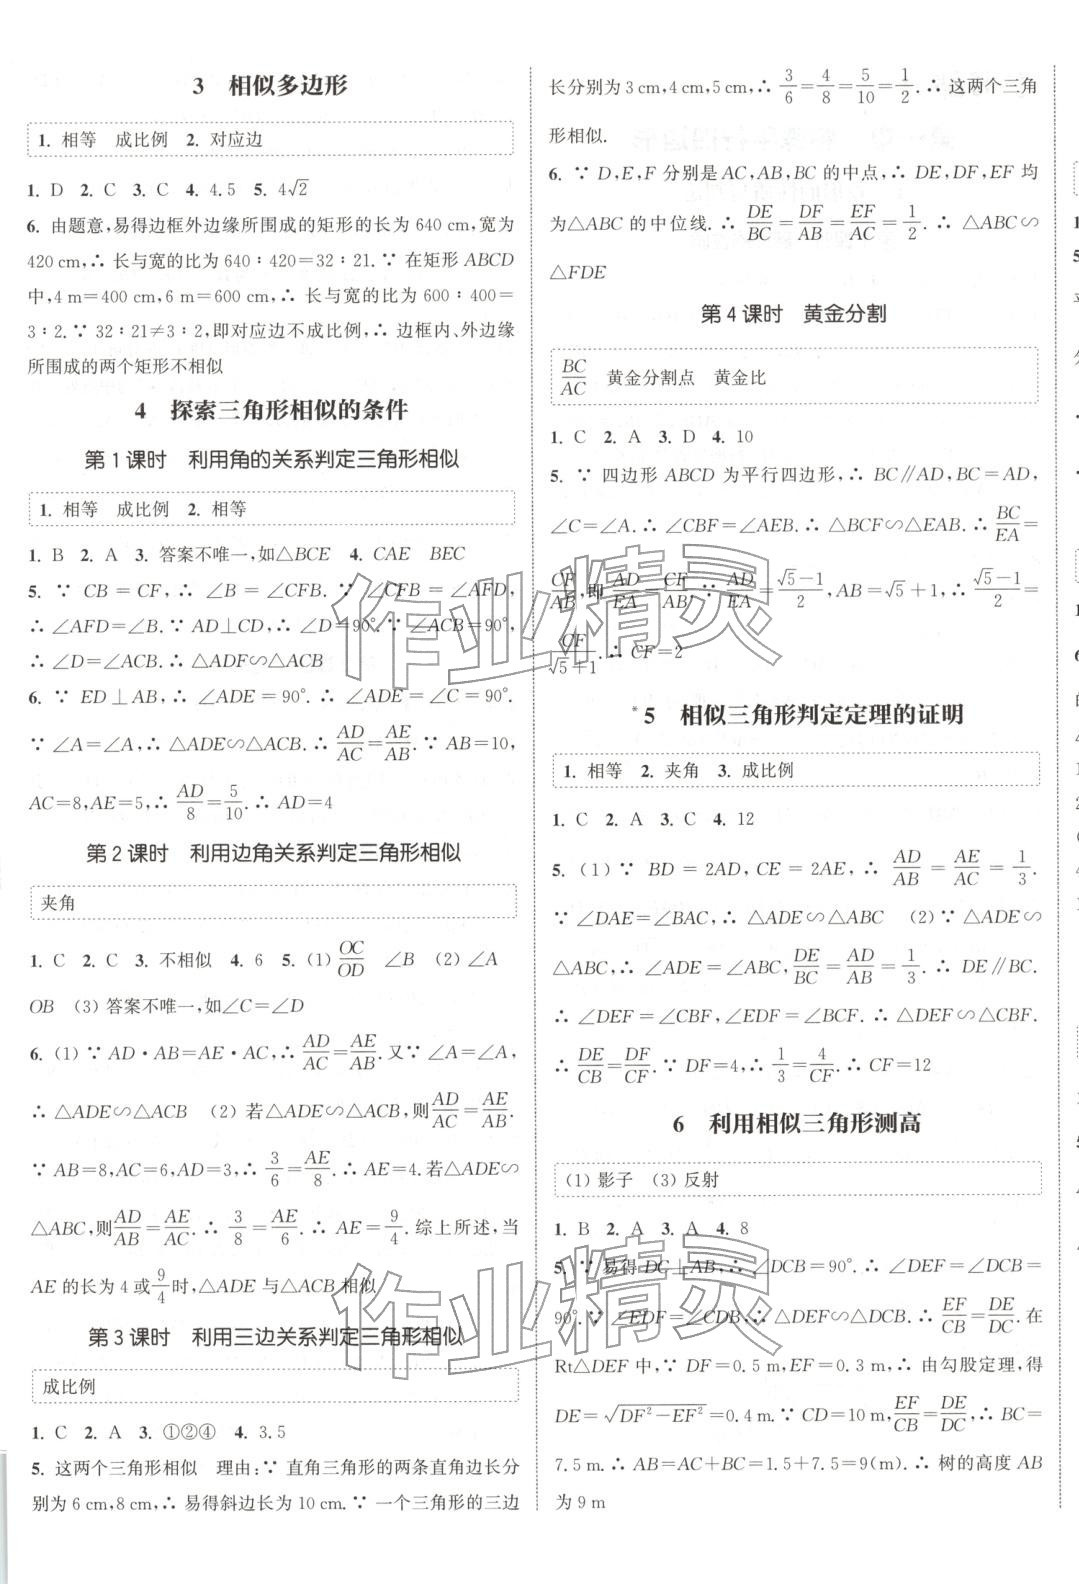 3 相似多边形
1. 相等 成比例 2. 对应边
1. D 2. C 3. C 4. 4.5 5. 4√2
6. 由题意,易得边框外边缘所围成的矩形的长为 640 cm,宽为
420 cm,∴ 长与宽的比为 640∶420=32∶21.∵ 在矩形 ABCD
中,4 m=400 cm,6 m=600 cm,∴ 长与宽的比为 600∶400=
3∶2.∵ 32∶21≠3∶2,即对应边不成比例,∴ 边框内、外边缘
所围成的两个矩形不相似
4 探索三角形相似的条件
第 1 课时 利用角的关系判定三角形相似
1. 相等 成比例 2. 相等
1. B 2. A 3. 答案不唯一,如△BCE 4. CAE BEC
5. ∵ CB=CF,∴ ∠B=∠CFB.∵ ∠CFB=∠AFD,
∴ ∠AFD=∠B.∵ AD⊥CD,∴ ∠D=90°.∵ ∠ACB=90°,
∴ ∠D=∠ACB.∴ △ADF∽△ACB
6. ∵ ED⊥AB,∴ ∠ADE=90°.∴ ∠ADE=∠C=90°.
∵ ∠A=∠A,∴ △ADE∽△ACB.∴ AD/AC=AE/AB.∵ AB=10,
AC=8,AE=5,∴ AD/8=5/10.∴ AD=4
第 2 课时 利用边角关系判定三角形相似
夹角
1. C 2. C 3. 不相似 4. 6 5. (1) OC/OD ∠B (2) ∠A
OB (3) 答案不唯一,如∠C=∠D
6. (1) ∵ AD·AB=AE·AC,∴ AD/AC=AE/AB.又∵ ∠A=∠A,
∴ △ADE∽△ACB (2) 若△ADE∽△ACB,则AD/AC=AE/AB.
∵ AB=8,AC=6,AD=3,∴ 3/6=AE/8.∴ AE=4.若△ADE∽
△ABC,则AD/AB=AE/AC.∴ 3/8=AE/6.∴ AE=9/4.综上所述,当
AE 的长为 4 或9/4时,△ADE 与△ACB 相似
第 3 课时 利用三边关系判定三角形相似
成比例
1. C 2. A 3. ①②④ 4. 3.5
5. 这两个三角形相似 理由:∵ 直角三角形的两条直角边长分
别为 6 cm,8 cm,∴ 易得斜边长为 10 cm.∵ 一个三角形的三边
长分别为 3 cm,4 cm,5 cm,∴ 3/6=4/8=5/10=1/2.∴ 这两个三角
形相似.
6. ∵ D,E,F 分别是 AC,AB,BC 的中点,∴ DE,DF,EF 均
为△ABC 的中位线.∴ DE/BC=DF/AB=EF/AC=1/2.∴ △ABC∽
△FDE
第 4 课时 黄金分割
BC/AC 黄金分割点 黄金比
1. C 2. A 3. D 4. 10
5. ∵ 四边形 ABCD 为平行四边形,∴ BC∥AD,BC=AD,
∠C=∠A.∴ ∠CBF=∠AEB.∴ △BCF∽△EAB.∴ BC/EA=
CF/AB,即AD/EA=CF/AB.∵ AD/EA=(√5−1)/2,AB=√5+1,∴ (√5−1)/2=
CF/(√5+1).∴ CF=2
*5 相似三角形判定定理的证明
1. 相等 2. 夹角 3. 成比例
1. C 2. A 3. C 4. 12
5. (1) ∵ BD=2AD,CE=2AE,∴ AD/AB=AE/AC=1/3.
∵ ∠DAE=∠BAC,∴ △ADE∽△ABC (2) ∵ △ADE∽
△ABC,∴ ∠ADE=∠ABC,DE/BC=AD/AB=1/3.∴ DE∥BC.
∴ ∠DEF=∠CBF,∠EDF=∠BCF.∴ △DEF∽△CBF.
∴ DE/CB=DF/CF.∵ DF=4,∴ 1/3=4/CF.∴ CF=12
6 利用相似三角形测高
(1) 影子 (3) 反射
1. B 2. A 3. A 4. 8
5. ∵ 易得 DC⊥AB,∴ ∠DCB=90°.∴ ∠DEF=∠DCB=
90°.∵ ∠EDF=∠CDB,∴ △DEF∽△DCB.∴ EF/CB=DE/DC.在
Rt△DEF 中,∵ DF=0.5 m,EF=0.3 m,∴ 由勾股定理,得
DE=√(DF²−EF²)=0.4 m.∵ CD=10 m,EF/CB=DE/DC,∴ BC=
7.5 m.∴ AB=AC+BC=1.5+7.5=9(m).∴ 树的高度 AB
为 9 m
作业精灵
作业精灵